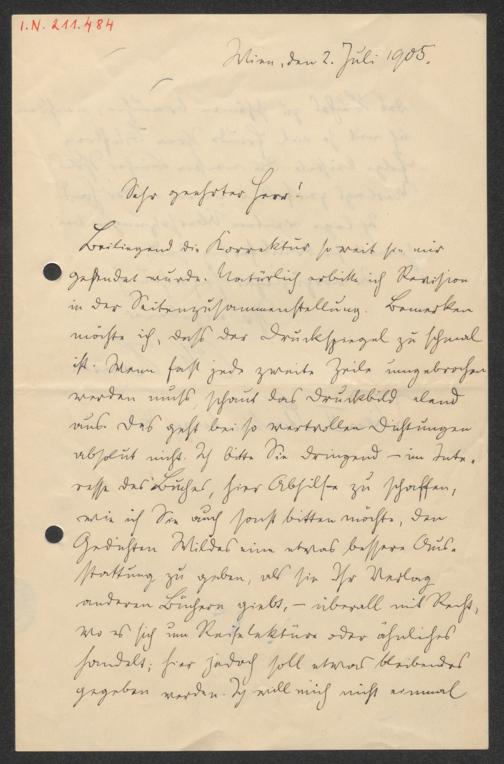 I.N. 211.484
Wien, den 2. Juli 1905.
Sehr geehrter Herr!
Beiliegend die Korrektur soweit sie mir
gesendet wurde. Natürlich erbitte ich Revision
in der Seitenzusammenstellung. Bemerken
möchte ich, daß der Druckspiegel zu schmal
ist. Wenn fast jede zweite Zeile umgebrochen
werden muß, schaut das Druckbild elend
aus. Das geht bei so wertvollen Dichtungen
absolut nicht. Ich bitte Sie dringend – im Inte-
resse des Buches, hier Abhilfe zu schaffen,
wie ich Sie auch sonst bitten möchte, den
Gedichten Wildes eine etwas bessere Aus-
stattung zu geben, als sie Ihr Verlag
anderen Büchern giebt, – überall mit Recht,
wo es sich um Reiselektüre oder ähnliches
handelt; hier jedoch soll etwas bleibendes
gegeben werden. Ich will mich nicht einmal